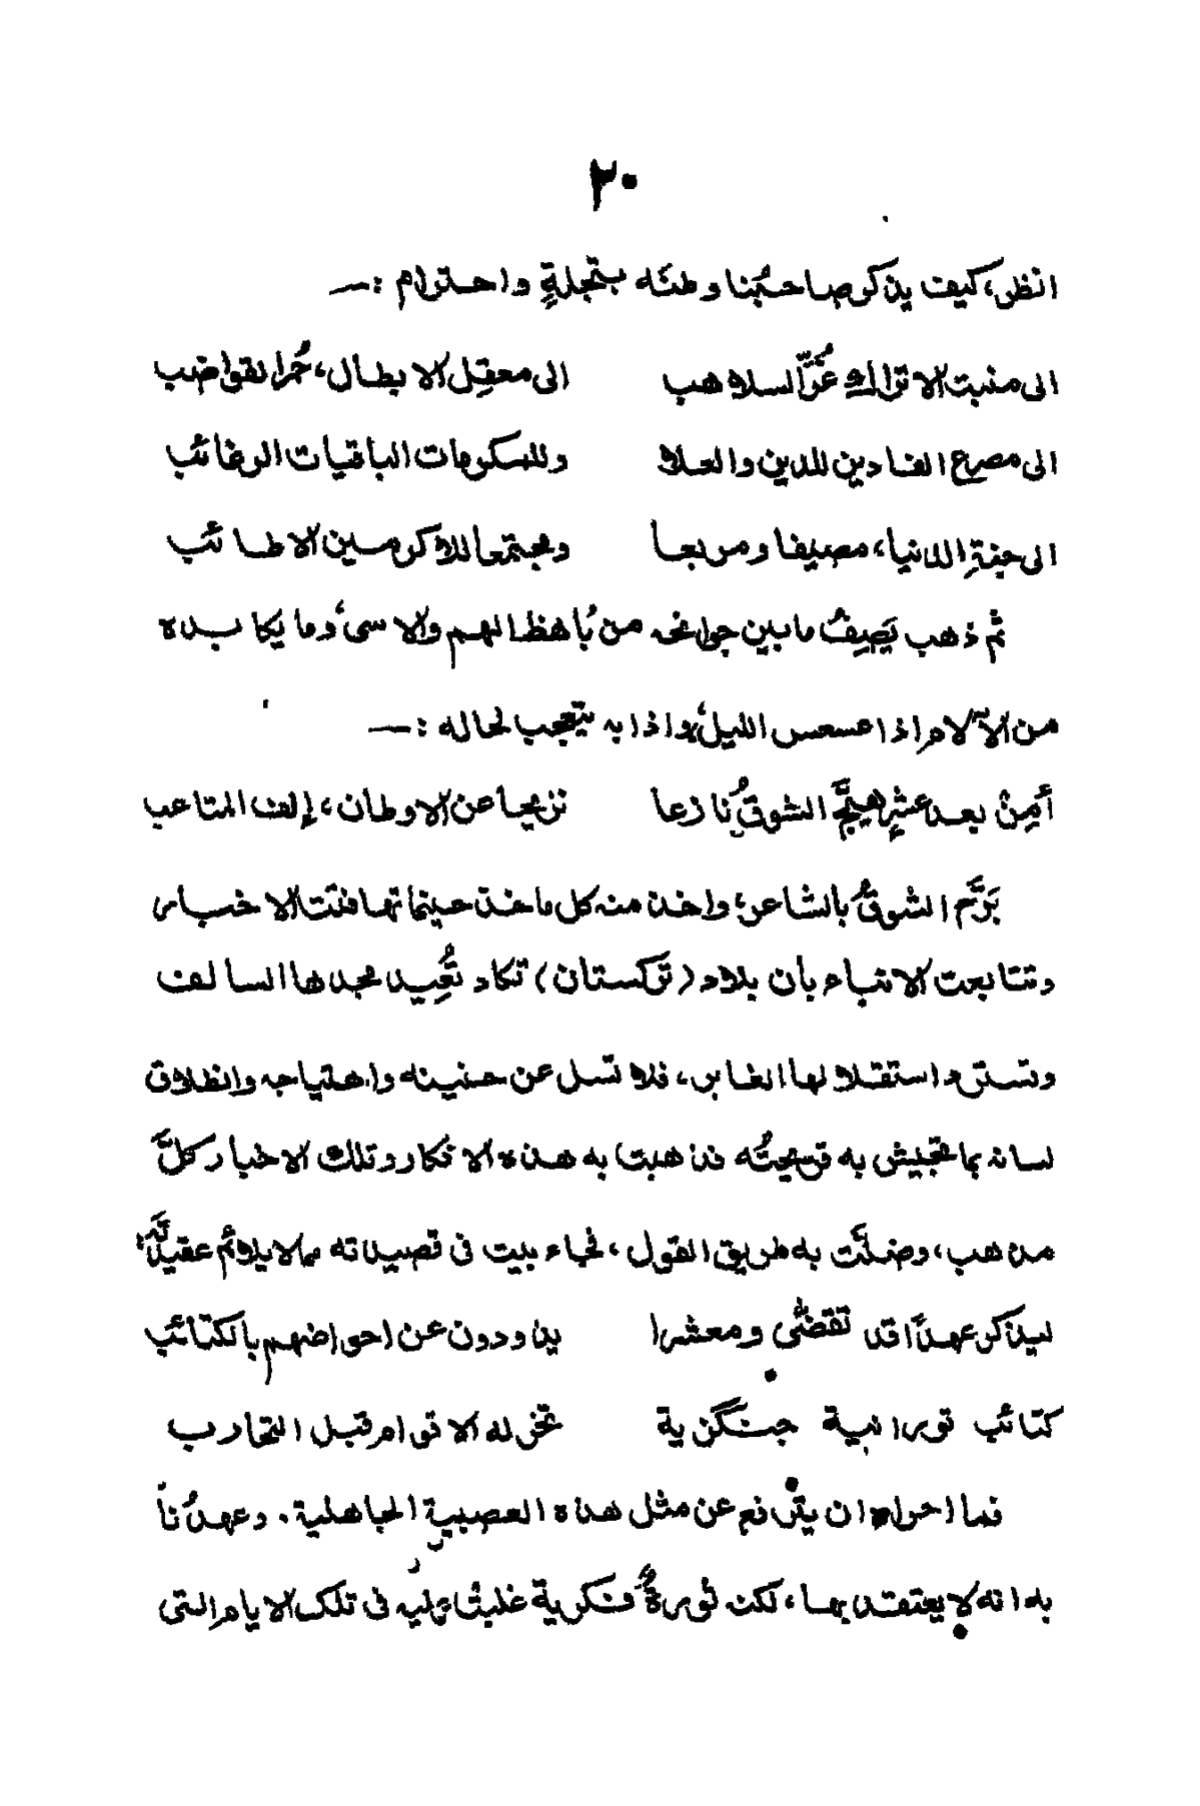 ٢٠
انظر، كيف يذكر صاحبُنا وطنَه بتجلةٍ واحترام :—
الى منبت الاتراك غُرّ السلاهب الى معقِل الابطال، حُمرا لقواضب
الى مصرع الفادين للدين والعلا وللمكرمات الباقيات الرغائب
الى جنةِ الدنيا، مصيفا ومربعا ومجتمعا للاكرمين الاطائب
ثم ذهب يَصِفُ ما بين جوانحه من بُاهظ الهم والاسىٰ وما يكابده
من الآلام اذا عسعس الليل، واذا به يتعجب لحاله :—
أمِنْ بعد عشرٍ هيجَّ الشوقُ نازعا نزيحا عن الاوطان، إلف المتاعب
بَرَّح الشوقُ بالشاعر، واخذ منه كل ماخذ حينما تهافتت الاخبار
وتتابعت الانباء بأن بلاد (تركستان) تكاد تُعِيد مجدها السالف
وتسترد استقلالها الغابر، فلا تسل عن حنينه واهتياجه وانطلاق
لسانه بما تجيش به قريحتُه فذهبت به هذه الافكار وتلك الاخبار كلَّ
مذهب، وضلَّت به طريق القول، فجاء ببيت فى قصيدته مما لا يلائم عقيدتَه
ليذكر عهدًا قد تقضّٰى ومعشرا يذودون عن احواضهم بالكتائب
كتائب تورانية جنگزية تخر له الاقوام قبل التحارب
فما احراه ان يترفع عن مثل هذه العصبية الجاهلية. وعهدُناَ
به انه لا يعتقد بها، لكنه ثورةٌ فكرية غلبت عليه فى تلك الايام التى